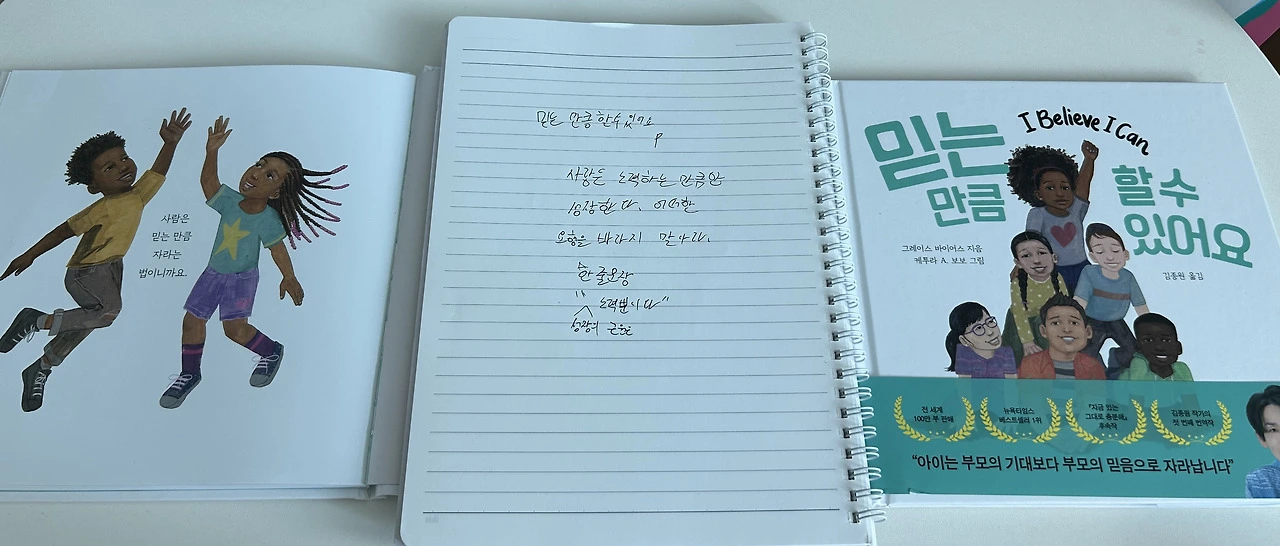 사람은
믿는 만큼
자라는
법이니까요.
믿는 만큼 할 수 있어요
P
사람은 노력하는 만큼만
성장한다. 어떠한
요행을 바라지 말아라.
한 줄 문장
" 노력뿐이다"
성장의 근원
I Believe I Can
믿는
만큼
할 수
있어요
그레이스 바이어스 지음
케투라 A. 보보 그림
김종원 옮김
전 세계
100만 부 판매
뉴욕타임스
베스트셀러 1위
『지금 있는
그대로 충분해』
후속작
김종원 작가의
첫 번째 번역작
“아이는 부모의 기대보다 부모의 믿음으로 자라납니다”